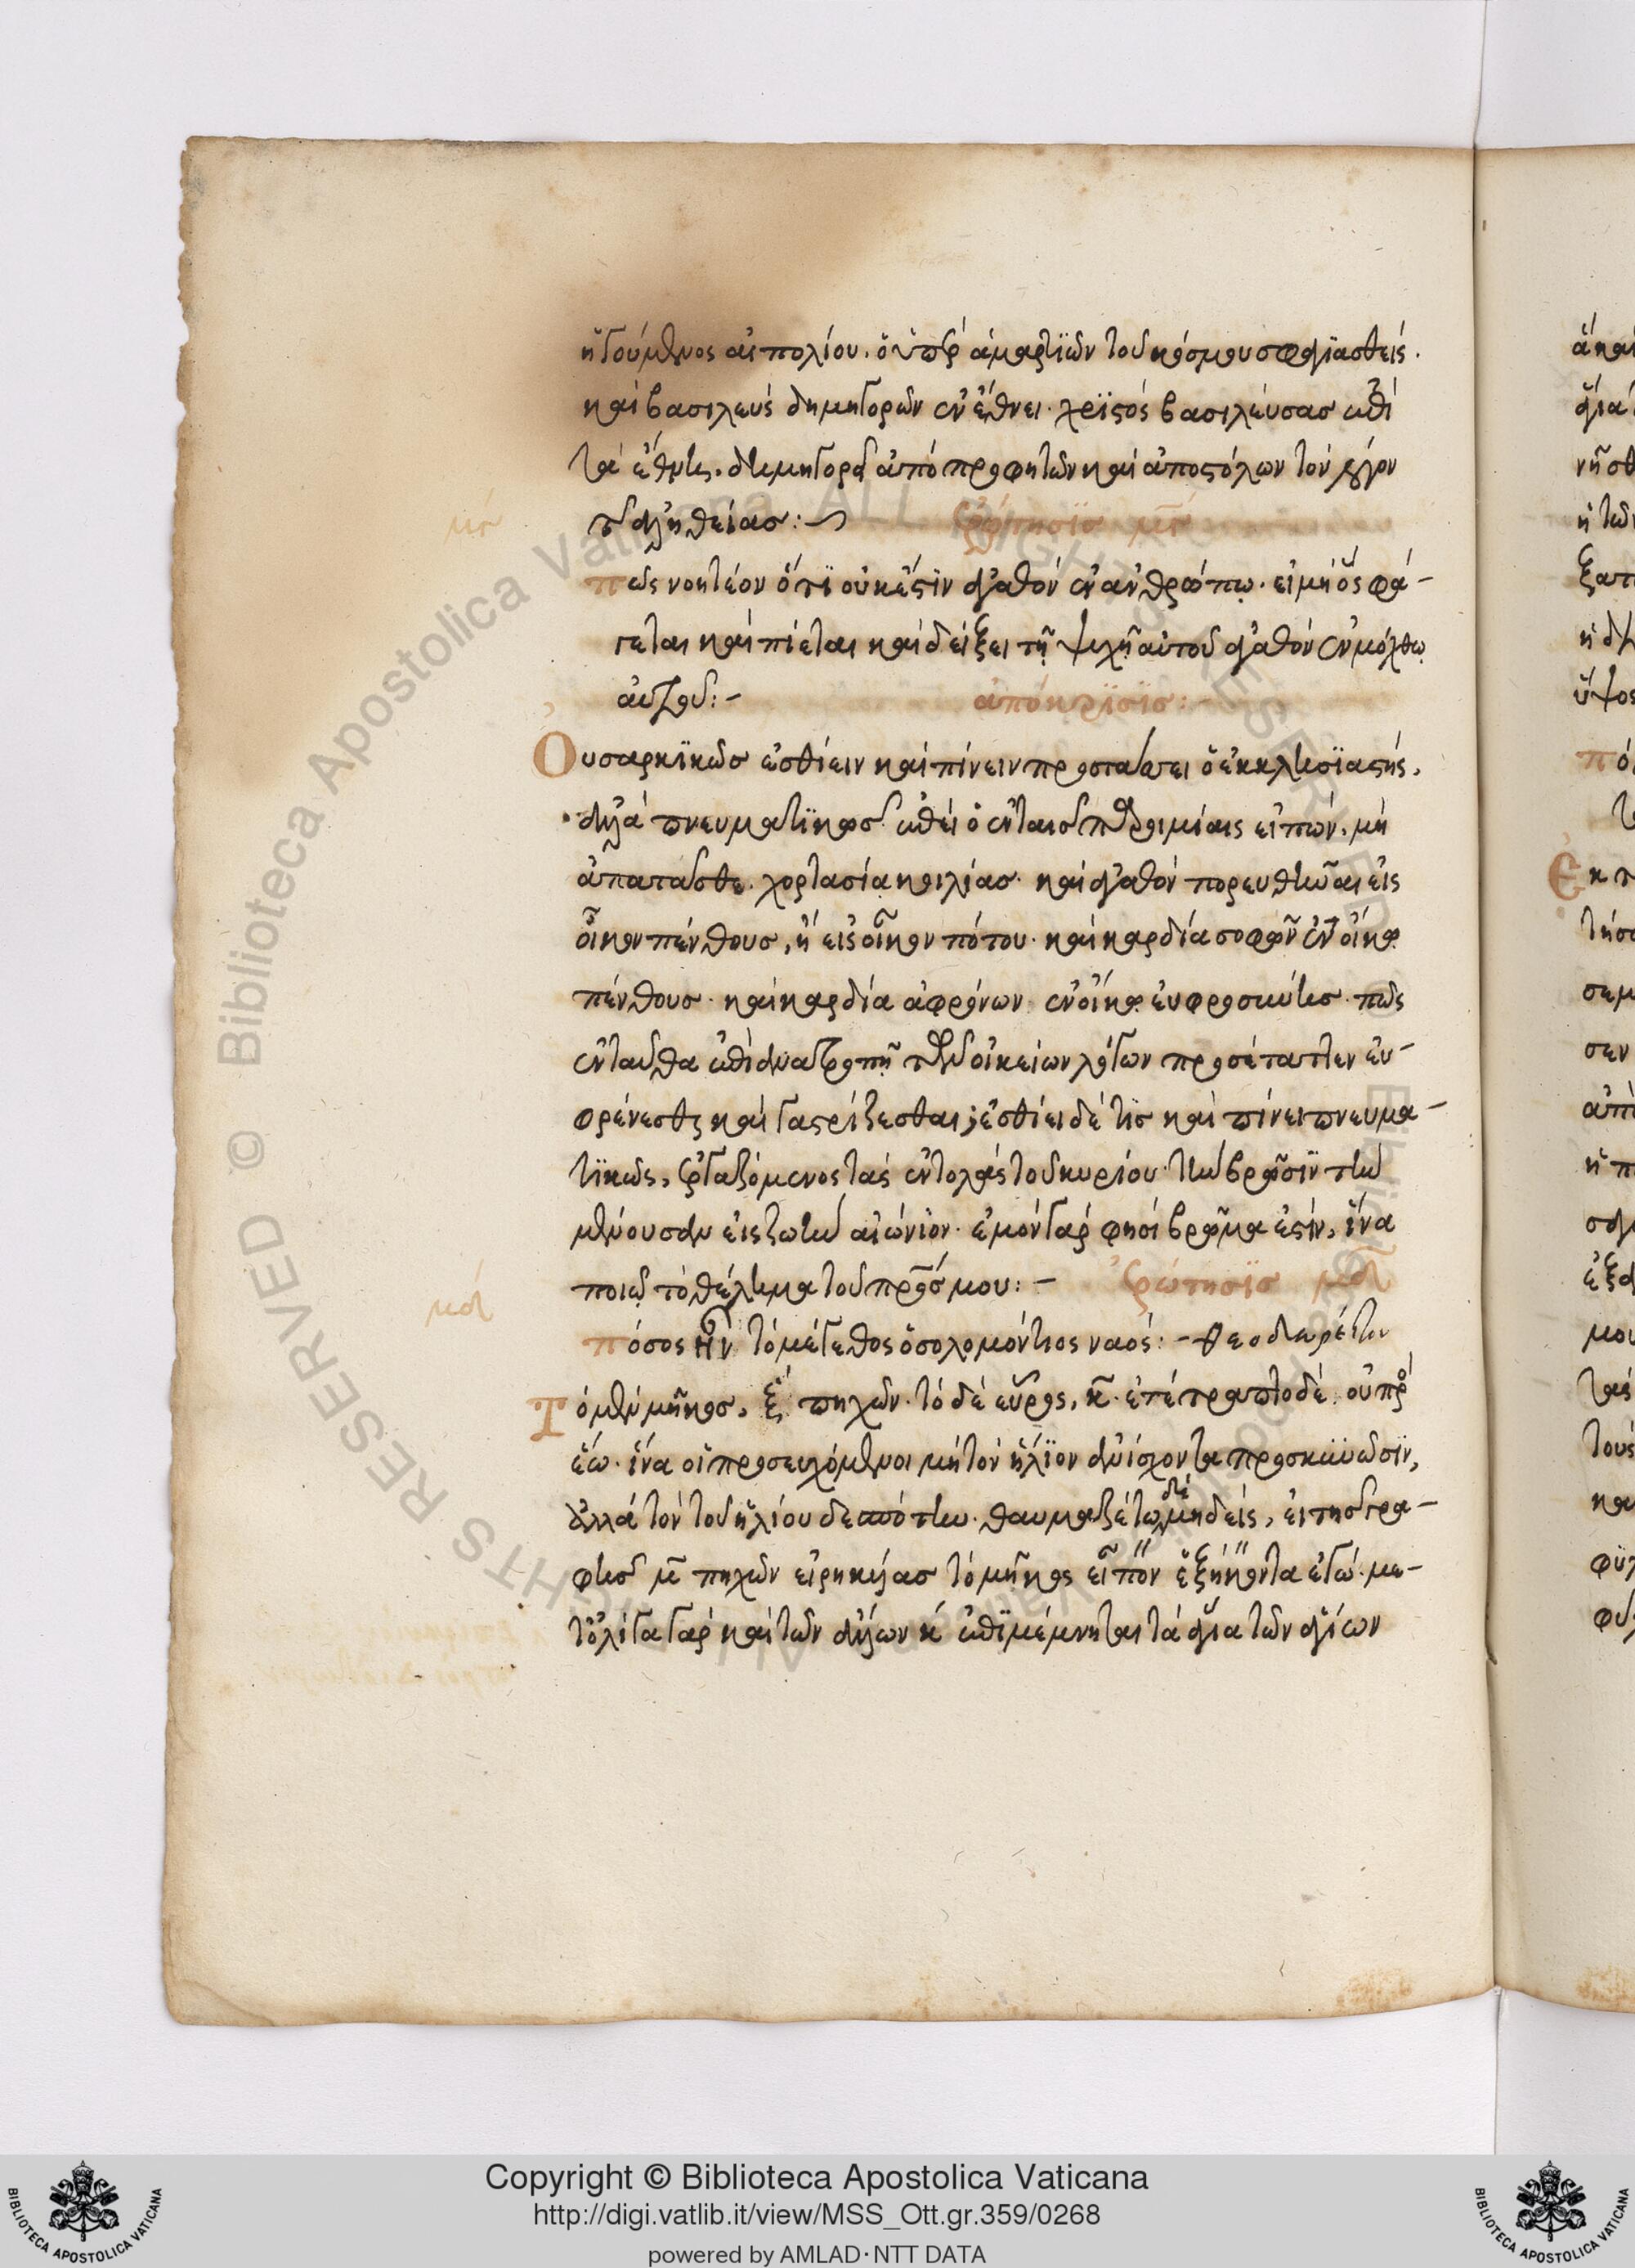 ἡγούμενος αἰπολίου. ὁ ὑπὲρ ἁμαρτϊῶν τοῦ κόσμου σφαγϊασθείς.
καὶ βασιλεὺς δημηγορῶν ἐν ἔθνει. χρϊστὸς βασιλεύσας ἐπὶ
τὰ ἔθνη. δημηγορεῖ ἀπὸ προφητῶν καὶ ἀποστόλων τὸν λόγον
τῆς ἀληθείας:
ἐρώτησϊς
πῶς νοητέον ὅτϊ οὐκ ἔστϊν ἀγαθὸν ἐν ἀνθρώπῳ. εἰ μὴ ὃς φά-
γεται καὶ πίεται καὶ δείξει τῇ ψυχῇ αὐτοῦ ἀγαθὸν ἐν μόχθῳ
αὐτοῦ:-
ἀπόκρϊσϊς:-
Οὐ σαρκϊκῶς ἐσθίειν καὶ πίνειν προστάττει ὁ ἐκκλησϊαστής,
ἀλλὰ πνευματϊκῶς. ἐπεὶ ὁ ἐν ταῖς παροιμίαις εἰπών, μὴ
ἀπατᾶσθε. χορτασία κοιλίας. καὶ ἀγαθὸν πορευθῆναι εἰς
οἶκον πένθους, ἢ εἰς οἶκον πότου. καὶ καρδία σοφῶν ἐν οἴκῳ
πένθους. καὶ καρδία ἀφρόνων ἐν οἴκῳ εὐφροσύνης. πῶς
ἐνταῦθα ἐπὶ ἀνατροπῇ τῶν οἰκείων λόγων προσέταττεν εὐ-
φρένεσθαι καὶ γαστρίζεσθαι; ἐσθίει δέ τις καὶ πίνει πνευμα-
τϊκῶς, ἐργαζόμενος τὰς ἐντολὰς τοῦ κυρίου. τὴν βρῶσϊν τὴν
μένουσαν εἰς ζωὴν αἰώνϊον. ἐμὸν γάρ φησι βρῶμα ἐστίν, ἵνα
ποιῶ τὸ θέλημα τοῦ πρσ μου:-
ἐρώτησϊς μζ
πόσος ἦν τὸ μέγεθος ὁ σολομόντιος ναός:- Θεοδωρήτου
Τὸ μὲν μῆκος, ξ πηχῶν. τὸ δὲ εὖρος, κ. ἐτέτραπτο δὲ οὐ πρὸς
ἕω. ἵνα οἱ προσευχόμενοι μὴ τὸν ἥλϊον ἀνίσχοντα προσκυνῶσϊν,
ἀλλὰ τὸν τοῦ ἡλίου δεσπότην. θαυμαζέτω δὲ μηδείς, εἰ τῆς γρα-
φῆς μ πηχῶν εἰρηκυίας τὸ μῆκος εἶπον ἑξήκοντα ἐγώ. με-
τ ὀλίγα γὰρ καὶ τῶν ἄλλων κ ἐπιμέμνηται τὰ ἅγια τῶν ἁγίων
Copyright © Biblioteca Apostolica Vaticana
http://digi.vatlib.it/view/MSS_Ott.gr.359/0268
powered by AMLAD·NTT DATA